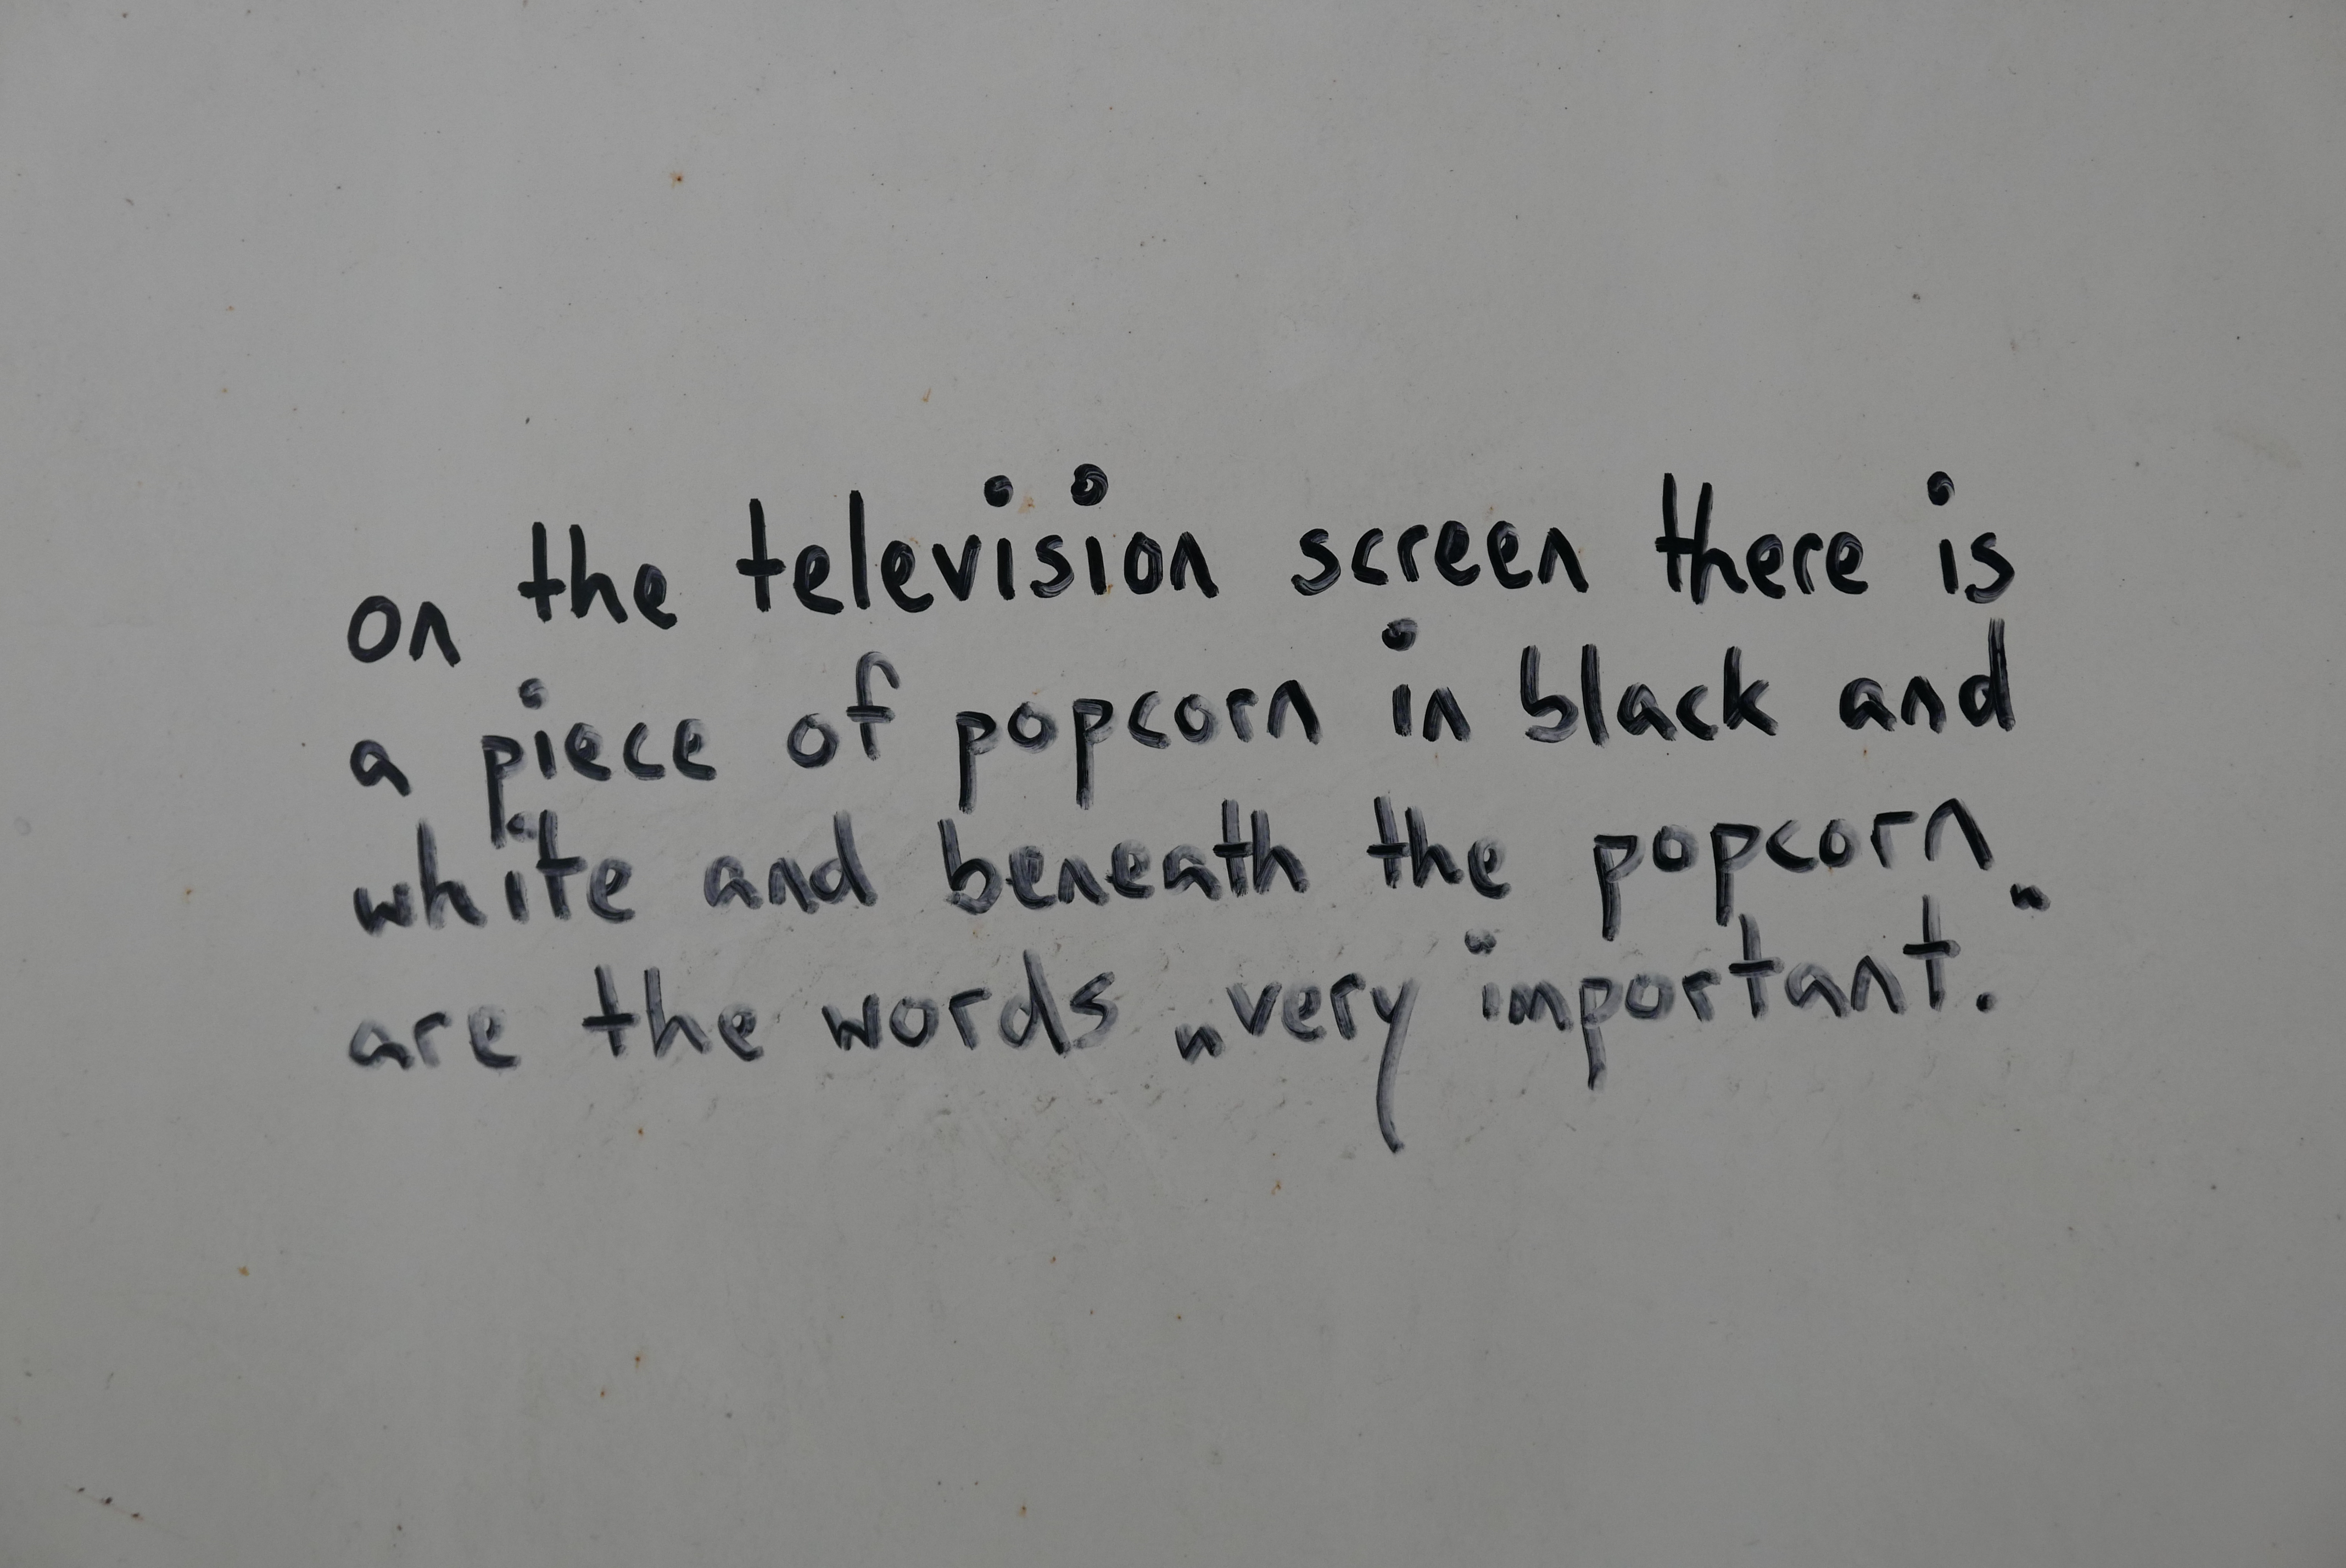 on the television screen there is
a piece of popcorn in black and
white and beneath the popcorn
are the words „very important.“